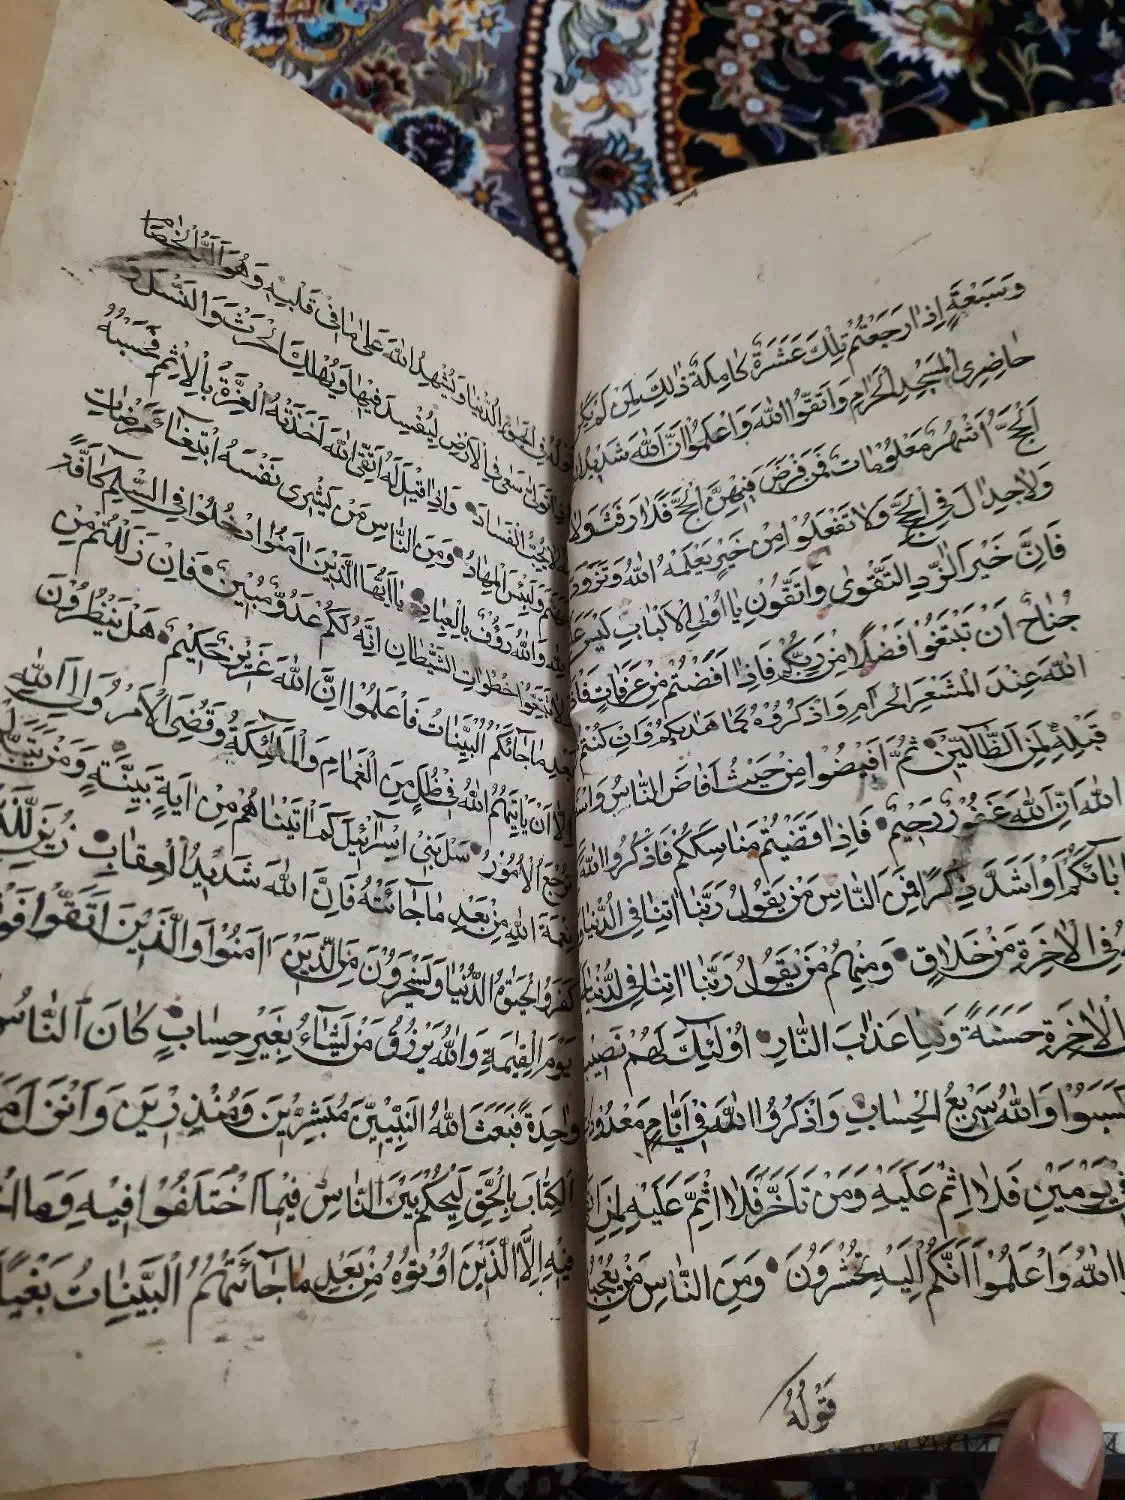 وَسَبْعَةٍ إِذَا رَجَعْتُمْ تِلْكَ عَشَرَةٌ كَامِلَةٌ ذَٰلِكَ لِمَنْ لَمْ يَكُنْ
حَاضِرِي الْمَسْجِدِ الْحَرَامِ وَاتَّقُوا اللَّهَ وَاعْلَمُوا أَنَّ اللَّهَ شَدِيدُ
الْحَجُّ أَشْهُرٌ مَعْلُومَاتٌ فَمَنْ فَرَضَ فِيهِنَّ الْحَجَّ فَلَا رَفَثَ وَلَا
وَلَا جِدَالَ فِي الْحَجِّ وَلَا تَفْعَلُوا مِنْ خَيْرٍ يَعْلَمْهُ اللَّهُ وَتَزَوَّدُوا
فَإِنَّ خَيْرَ الزَّادِ التَّقْوَىٰ وَاتَّقُونِ يَا أُولِي الْأَلْبَابِ لَيْسَ
جُنَاحٌ أَنْ تَبْتَغُوا فَضْلًا مِنْ رَبِّكُمْ فَإِذَا أَفَضْتُمْ مِنْ عَرَفَاتٍ
اللَّهَ عِنْدَ الْمَشْعَرِ الْحَرَامِ وَاذْكُرُوهُ كَمَا هَدَاكُمْ وَإِنْ كُنْتُمْ
قَبْلِهِ لَمِنَ الضَّالِّينَ ثُمَّ أَفِيضُوا مِنْ حَيْثُ أَفَاضَ النَّاسُ
اللَّهَ إِنَّ اللَّهَ غَفُورٌ رَحِيمٌ فَإِذَا قَضَيْتُمْ مَنَاسِكَكُمْ فَاذْكُرُوا اللَّهَ
آبَائَكُمْ أَوْ أَشَدَّ ذِكْرًا فَمِنَ النَّاسِ مَنْ يَقُولُ رَبَّنَا آتِنَا فِي الدُّنْيَا
فِي الْآخِرَةِ مِنْ خَلَاقٍ وَمِنْهُمْ مَنْ يَقُولُ رَبَّنَا آتِنَا فِي الدُّنْيَا
الْآخِرَةِ حَسَنَةً وَقِنَا عَذَابَ النَّارِ أُولَٰئِكَ لَهُمْ نَصِيبٌ
كَسَبُوا وَاللَّهُ سَرِيعُ الْحِسَابِ وَاذْكُرُوا اللَّهَ فِي أَيَّامٍ مَعْدُودَاتٍ
فِي يَوْمَيْنِ فَلَا إِثْمَ عَلَيْهِ وَمَنْ تَأَخَّرَ فَلَا إِثْمَ عَلَيْهِ لِمَنِ
اللَّهَ وَاعْلَمُوا أَنَّكُمْ إِلَيْهِ تُحْشَرُونَ وَمِنَ النَّاسِ مَنْ يُعْجِبُكَ
قَوْلُهُ
قَوْلُهُ فِي الْحَيَوةِ الدُّنْيَا وَيُشْهِدُ اللَّهَ عَلَىٰ مَا فِي قَلْبِهِ وَهُوَ أَلَدُّ الْخِصَامِ
تَوَلَّىٰ سَعَىٰ فِي الْأَرْضِ لِيُفْسِدَ فِيهَا وَيُهْلِكَ الْحَرْثَ وَالنَّسْلَ وَ
لَا يُحِبُّ الْفَسَادَ وَإِذَا قِيلَ لَهُ اتَّقِ اللَّهَ أَخَذَتْهُ الْعِزَّةُ بِالْإِثْمِ فَحَسْبُهُ
جَهَنَّمُ وَلَبِئْسَ الْمِهَادُ وَمِنَ النَّاسِ مَنْ يَشْرِي نَفْسَهُ ابْتِغَاءَ مَرْضَاتِ
اللَّهِ وَاللَّهُ رَؤُفٌ بِالْعِبَادِ يَا أَيُّهَا الَّذِينَ آمَنُوا ادْخُلُوا فِي السِّلْمِ كَافَّةً
وَلَا تَتَّبِعُوا خُطُوَاتِ الشَّيْطَانِ إِنَّهُ لَكُمْ عَدُوٌّ مُبِينٌ فَإِنْ زَلَلْتُمْ مِنْ
بَعْدِ مَا جَائَتْكُمُ الْبَيِّنَاتُ فَاعْلَمُوا أَنَّ اللَّهَ عَزِيزٌ حَكِيمٌ هَلْ يَنْظُرُونَ
إِلَّا أَنْ يَأْتِيَهُمُ اللَّهُ فِي ظُلَلٍ مِنَ الْغَمَامِ وَالْمَلَائِكَةُ وَقُضِيَ الْأَمْرُ وَإِلَى اللَّهِ
تُرْجَعُ الْأُمُورُ سَلْ بَنِي إِسْرَائِيلَ كَمْ آتَيْنَاهُمْ مِنْ آيَةٍ بَيِّنَةٍ وَمَنْ يُبَدِّلْ
نِعْمَةَ اللَّهِ مِنْ بَعْدِ مَا جَائَتْهُ فَإِنَّ اللَّهَ شَدِيدُ الْعِقَابِ زُيِّنَ لِلَّذِينَ
كَفَرُوا الْحَيَوةُ الدُّنْيَا وَيَسْخَرُونَ مِنَ الَّذِينَ آمَنُوا وَالَّذِينَ اتَّقَوْا فَوْقَهُمْ
يَوْمَ الْقِيَمَةِ وَاللَّهُ يَرْزُقُ مَنْ يَشَاءُ بِغَيْرِ حِسَابٍ كَانَ النَّاسُ
وَاحِدَةً فَبَعَثَ اللَّهُ النَّبِيِّينَ مُبَشِّرِينَ وَمُنْذِرِينَ وَأَنْزَلَ مَعَهُمُ
الْكِتَابَ بِالْحَقِّ لِيَحْكُمَ بَيْنَ النَّاسِ فِيمَا اخْتَلَفُوا فِيهِ وَمَا
فِيهِ إِلَّا الَّذِينَ أُوتُوهُ مِنْ بَعْدِ مَا جَائَتْهُمُ الْبَيِّنَاتُ بَغْيًا